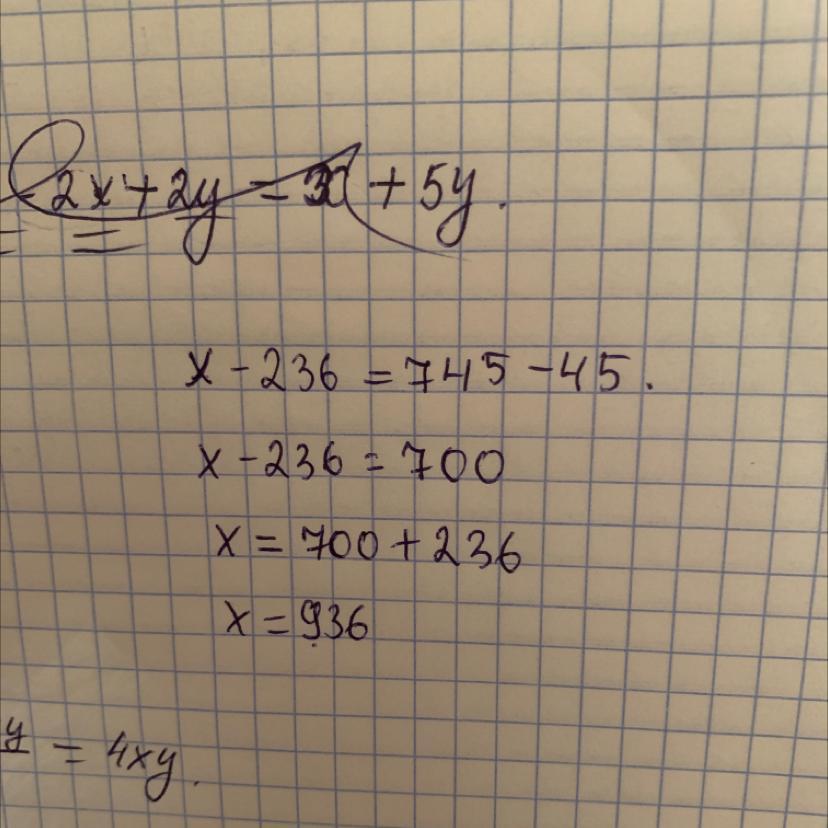 - 2x + 2y = 3x + 5y.
x - 236 = 745 - 45.
x - 236 = 700
x = 700 + 236
x = 936
y = 4xy.